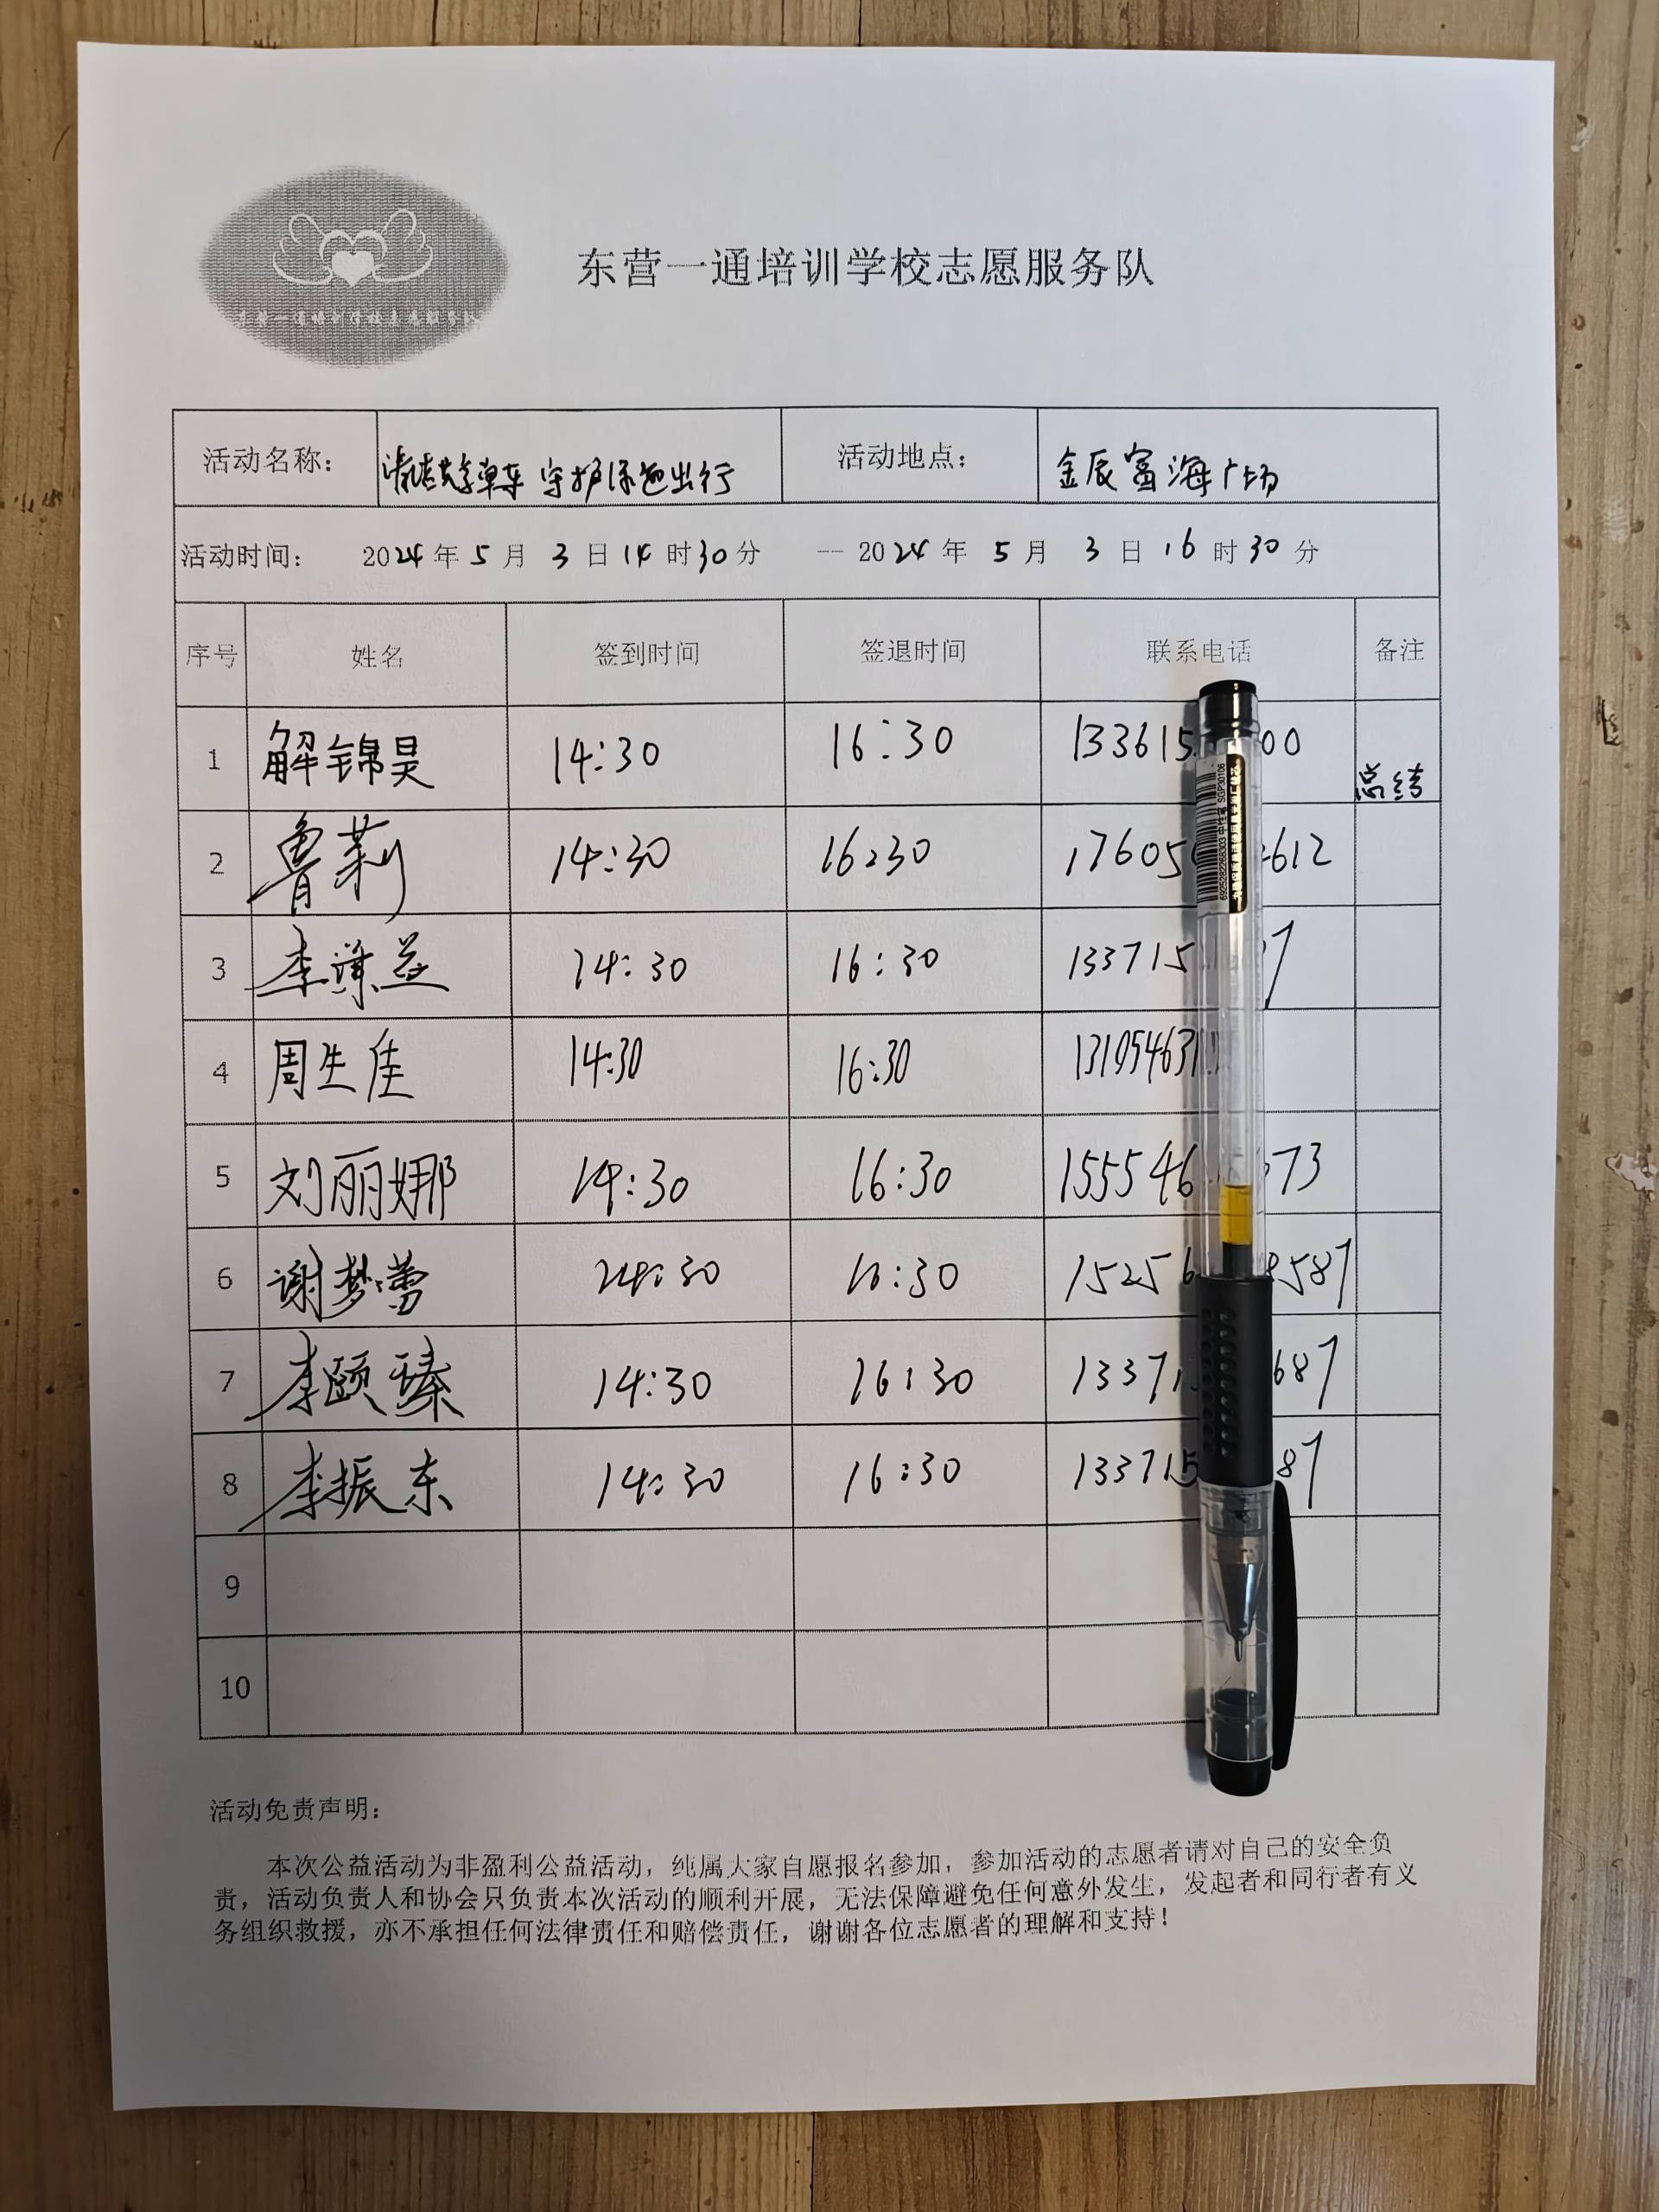 东营一通培训学校志愿服务队
活动名称： 清洁共享单车 守护绿色出行 活动地点： 金辰富海广场
活动时间： 2024年5月3日14时30分 -- 2024年5月3日16时30分
序号 姓名 签到时间 签退时间 联系电话 备注
1 解锦昊 14:30 16:30 133615 00 总结
2 鲁莉 14:30 16:30 17605 612
3 李 益 14:30 16:30 133715 7
4 周生佳 14:30 16:30 131054631
5 刘丽娜 14:30 16:30 155546 73
6 谢梦蕾 14:30 16:30 15256 8587
7 李颐臻 14:30 16:30 13371 687
8 李振东 14:30 16:30 133715 87
9
10
活动免责声明：
本次公益活动为非盈利公益活动，纯属大家自愿报名参加，参加活动的志愿者请对自己的安全负
责，活动负责人和协会只负责本次活动的顺利开展，无法保障避免任何意外发生，发起者和同行者有义
务组织救援，亦不承担任何法律责任和赔偿责任，谢谢各位志愿者的理解和支持！